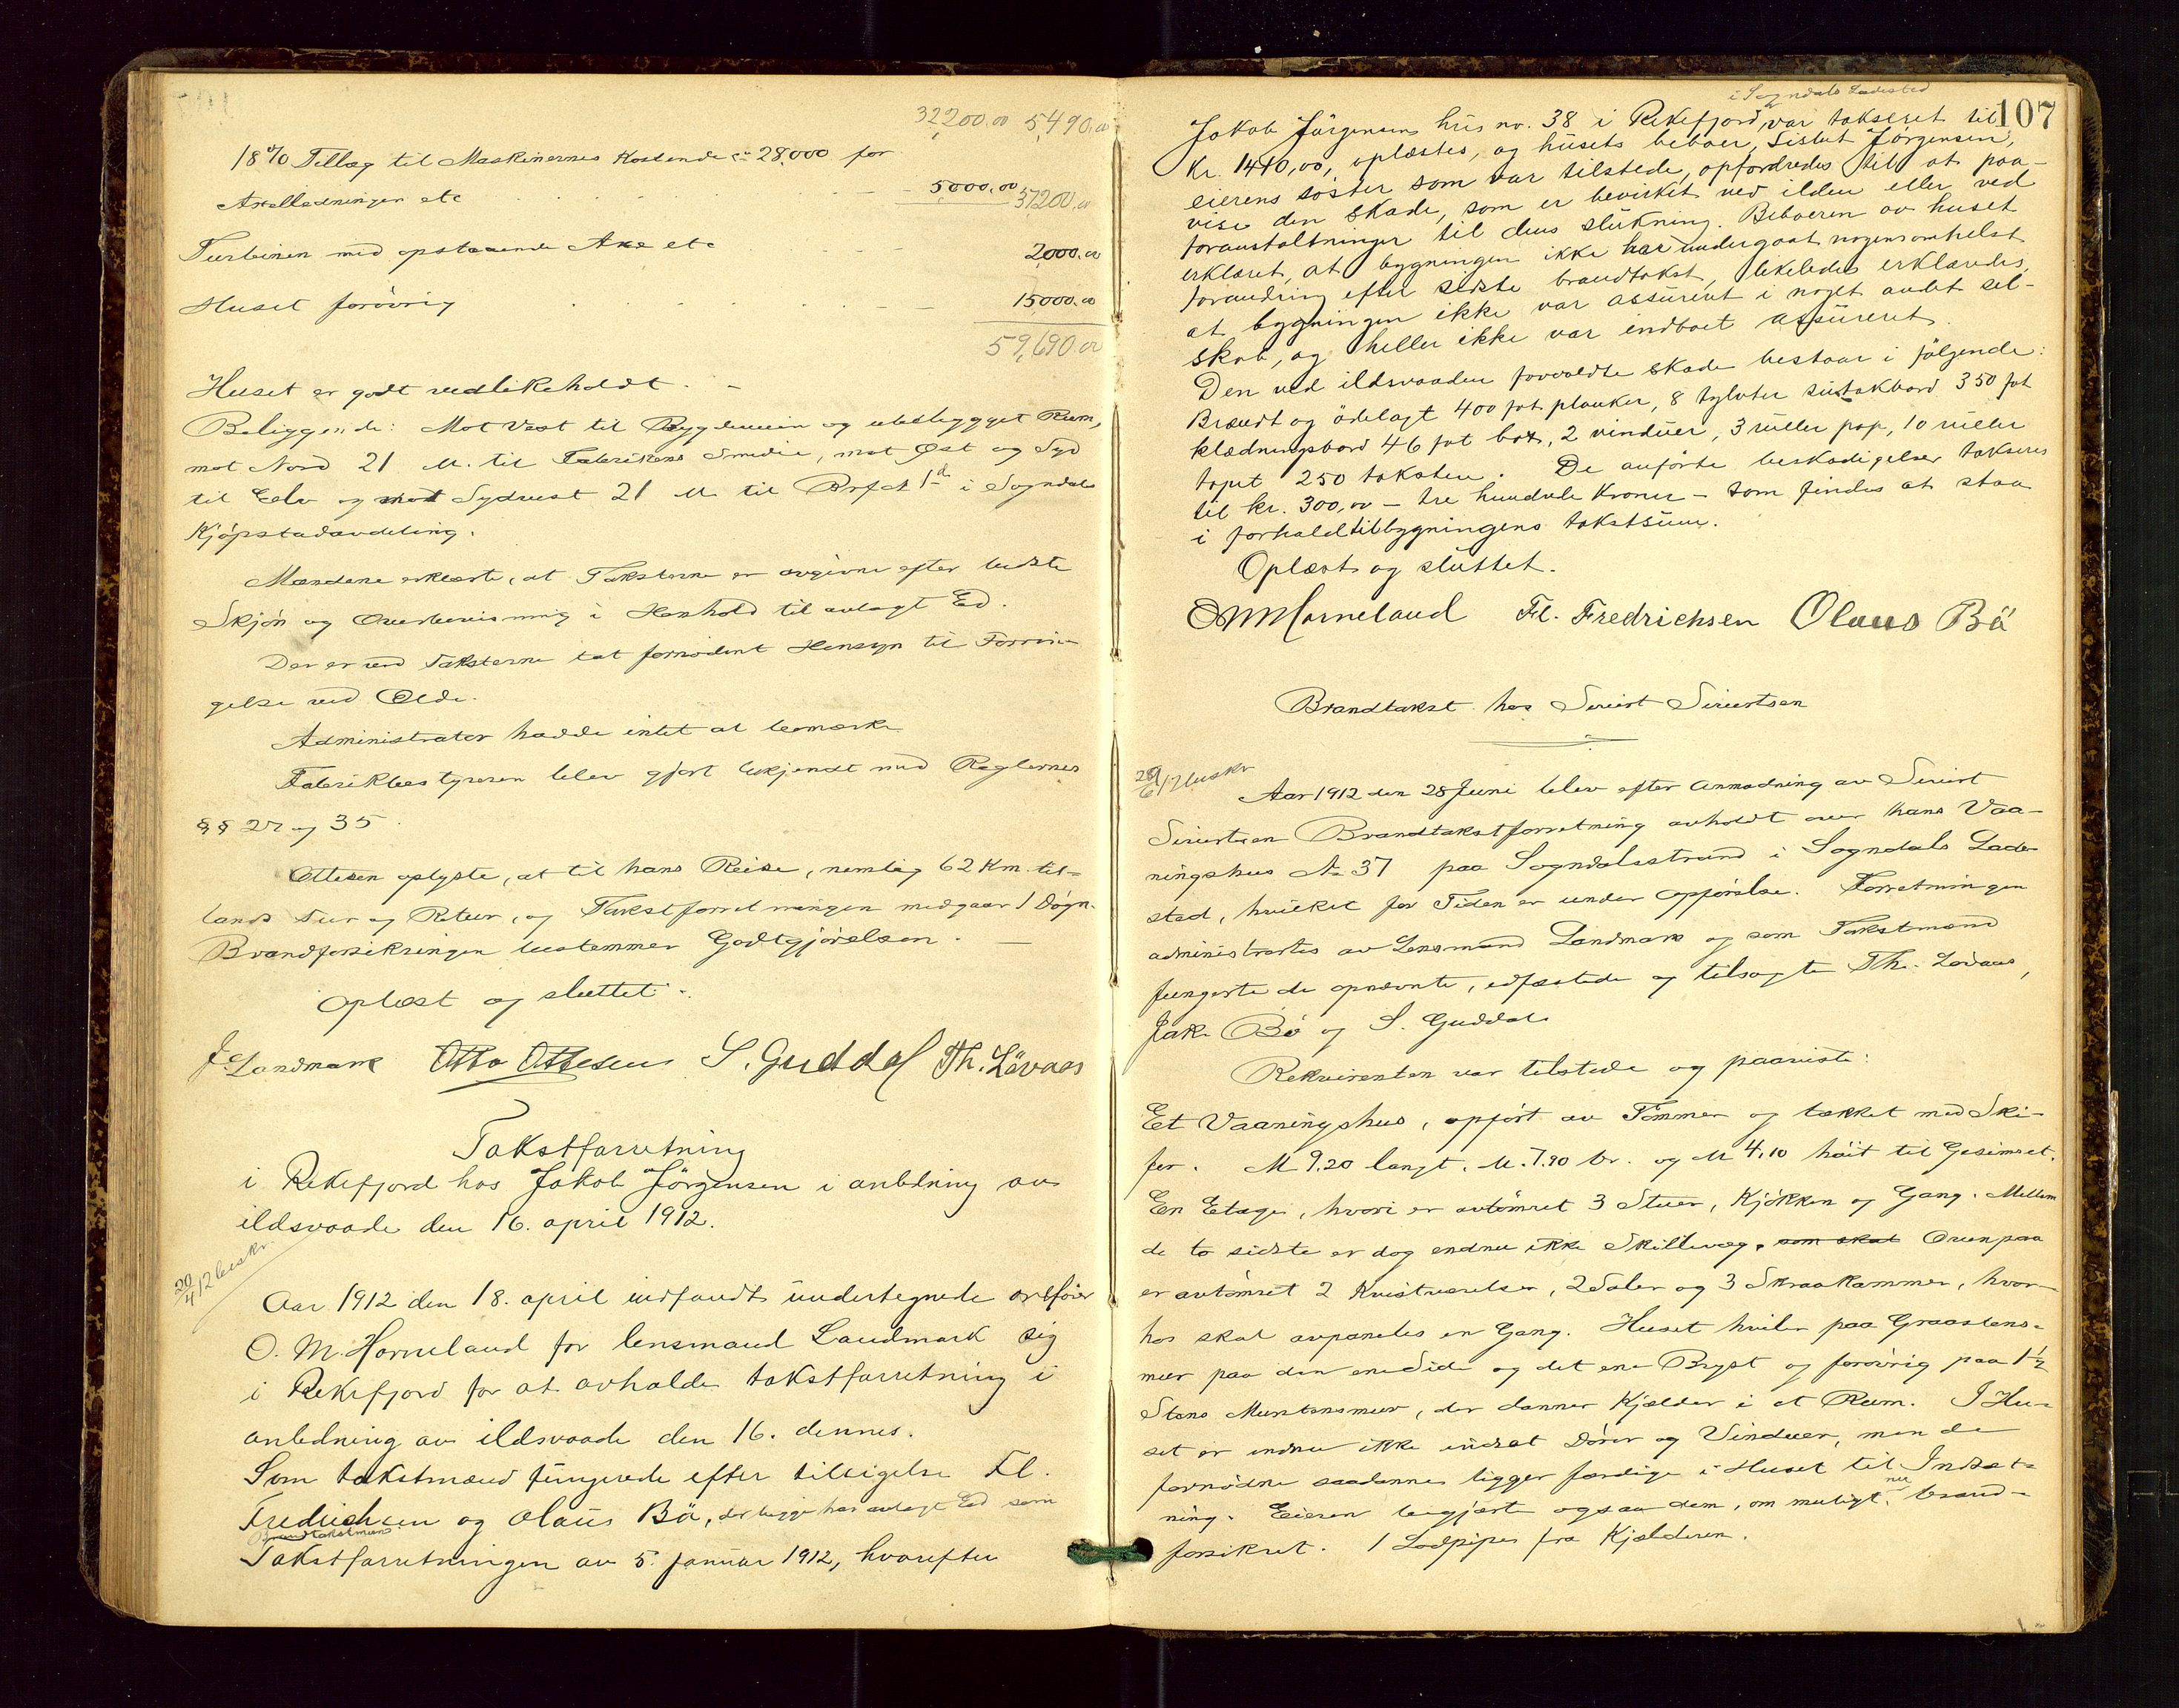 32,200.00 5,490.00
18% Tillæg til Maskinernes Kostende ca 28,000 for
Axelledningen etc 5,000.00 37200.00
Turbinen med opstaaende Axe etc 2,000.00
Huset forövrig 15,000.00
59,690.00
Huset er godt vedlikeholdt. -
Beliggende: Mot Vest til Bygdeveien og ubebygget Rum,
mot Nord 21 M. til Fabrikens Smidie, mot Øst og Syd
til Elv og mot Sydvest 21 M til Brf. 1 i Sogndals
Kjøpstadavdeling.
Mændene erklærte, at Taksterne er avgivne efter bedste
Skjön og Overbevisning i Henhold til avlagt Ed.
Der er ved Taksterne tat fornødent Hensyn til Forrin-
gelse ved Ælde.
Administrator hadde intet at bemærke
Fabrikbestyreren blev gjort bekjendt med Reglernes
§§ 27 og 35.
Ottesen oplyste, at til hans Reise, nemlig 62 Km. til-
lands Tur og Retur, og Takstforretningen medgaar 1 Døgn.
Brandforsikringen bestemmer Godtgjörelsen. -
Oplæst og sluttet.
J. Landmark Otto Ottesen S. Guddal Th. Lövaas
Takstforretning
i Rekefjord hos Jakob Jörgensen i anledning av
ildsvaade den 16. april 1912.
20/4 12 beskr.
Aar 1912 den 18. april indfandt undertegnede ordförer
O. M. Horneland for lensmand Landmark sig
i Rekefjord for at avholde takstforretning i
anledning av ildsvaade den 16. dennes.
Som takstmænd fungerede efter tilsigelse Fl.
Fredrichsen og Olaus Bö, der begge har avlagt Ed som
Brandtakstmænd
Takstforretningen av 5. januar 1912, hvorefter
107
i Sogndals Ladested
Jakob Jörgensens hus no. 38 i Rekefjord, var takseret til
Kr. 1410,00, oplæstes, og husets beboer, Sisbet Jörgensen,
eierens söster som var tilstede, opfordredes til at paa-
vise den skade, som er bevirket ved ilden eller ved
foranstaltninger til dens slukning. Beboeren av huset
erklæret, at bygningen ikke har undergaat nogensomhelst
forandring efter sidste brandtakst, likeledes erklæredes,
at bygningen ikke var assureret i noget andet sel-
skab, og heller ikke var indboet assureret.
Den ved ildsvaaden forvoldte skade bestaar i følgende:
Brændt og ödelagt 400 fot planker, 8 tylvter sutakbord 350 fot
klædningsbord 46 fot box, 2 vinduer, 3 ruller pap, 10 ruller
tapet 250 taksten. De anförte beskadigelser takseres
til kr. 300,00 - tre hundrede Kroner - som findes at staa
i forhold til bygningens takstsum.
Oplæst og sluttet.
OM Horneland Fl. Fredrichsen Olaus Bö
Brandtakst hos Sivert Sivertsen
29/6 12 beskr
Aar 1912 den 28 Juni blev efter Anmodning av Sivert
Sivertsen Brandtakstforretning avholdt over hans Vaa-
ningshus No 37 paa Sogndalsstrand i Sogndals Lade-
sted, hvilket for Tiden er under Opførelse. Forretningen
administrertes av Lensmand Landmark og som Takstmænd
fungerte de opnævnte, edfæstede og tilsagte Th. Lövaas,
Jak. Bö og S. Guddal
Rekvirenten var tilstede og paaviste:
Et Vaaningshus, opført av Tömmer og tækket med Ski-
fer. M 9.20 langt, M. 7.90 br. og M 4,10 höit til Gesimset.
En Etage, hvori er avtömret 3 Stuer, Kjøkken og Gang. Mellem
de to sidste er dog endnu ikke Skillevæg. som skal Ovenpaa
er avtömret 2 Kvistværelser, 2 Saler og 3 Skraakammer, hvor-
hos skal avpaneles en Gang. Huset hviler paa Graastens-
mur paa den ene Side og det ene Bryst og forøvrig paa 1½
Stens Murstensmur, der danner Kjælder i et Rum. I Hu-
set er endnu ikke indsat Dörer og Vinduer, men de
fornödne saadanne ligger færdige i Huset til Indsæt-
ning. Eieren begjært ogsaa dem, om muligt, nu brand-
forsikret. 1 Lodpipe fra Kjælderen.